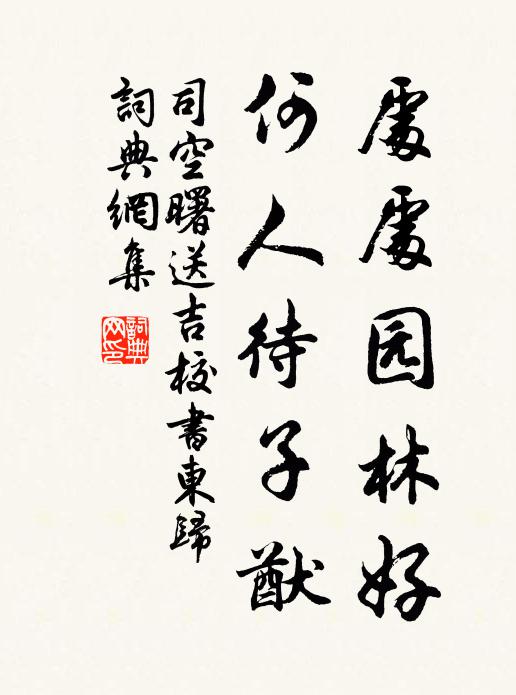 處處园林好
何人待子猷
司空曙送吉校書東歸
詞典網集
詞典網印